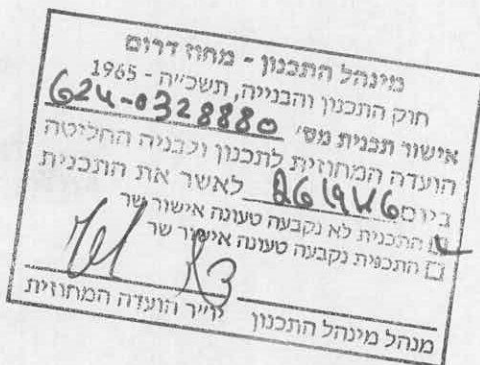 מינהל התכנון - מחוז דרום
חוק התכנון והבנייה, תשכ"ה - 1965
אישור תכנית מס' 624-0328880
הועדה המחוזית לתכנון ולבניה החליטה
ביום לאשר את התכנית
התכנית לא נקבעה טעונה אישור שר
התכנית נקבעה טעונה אישור שר
מנהל מינהל התכנון יו"ר הועדה המחוזית